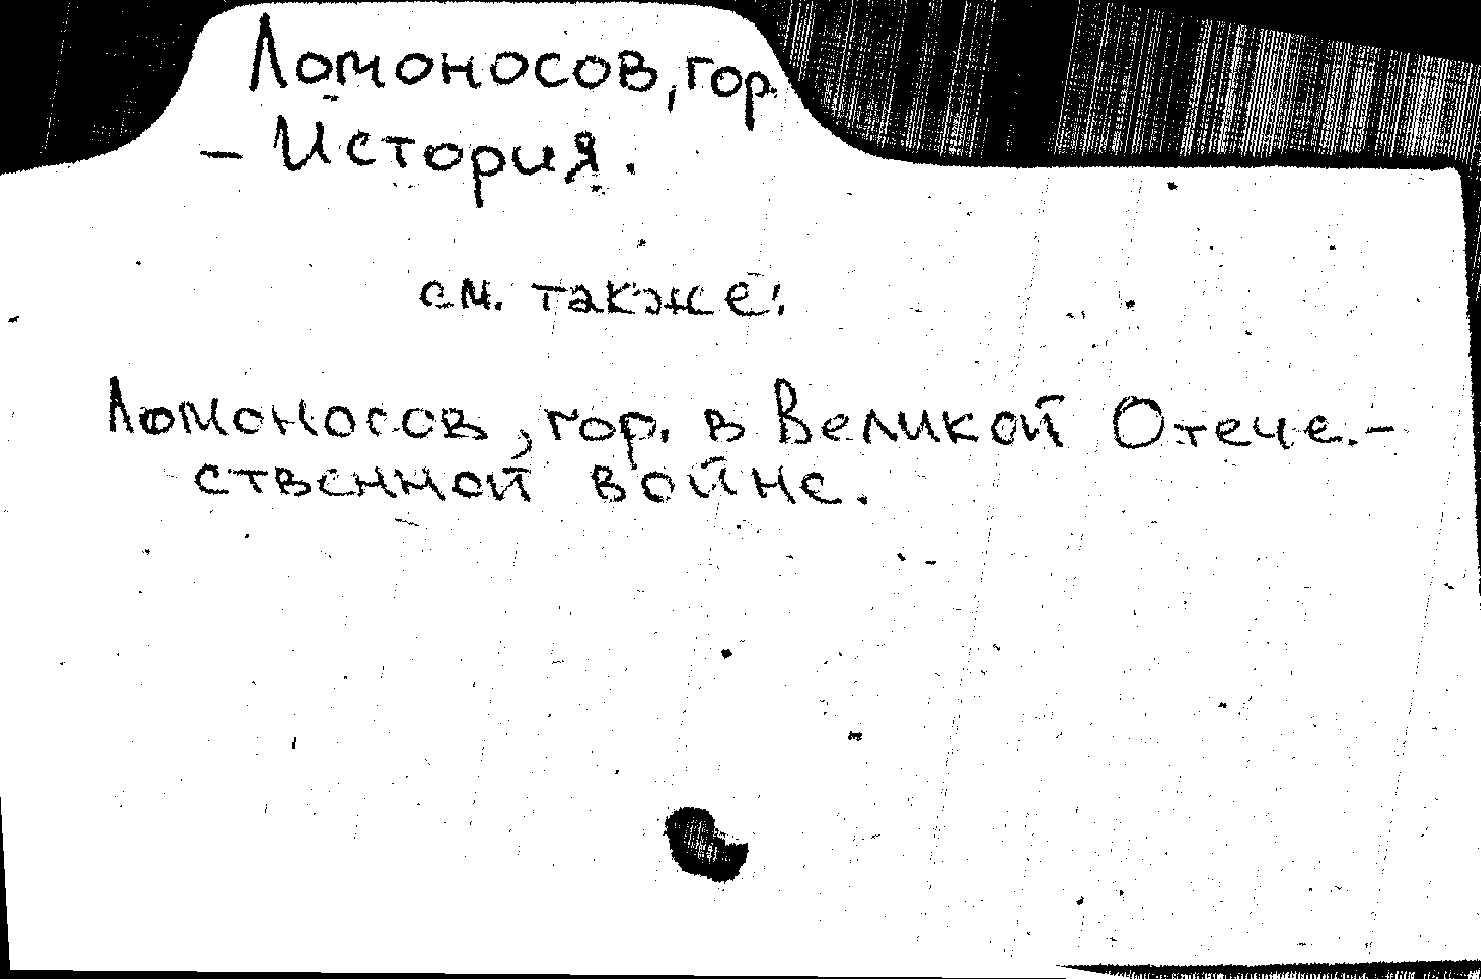 Ломоносов, гор.
- История.
см. также:
Ломоносов, гор. в Великой Отече-
ственной войне.